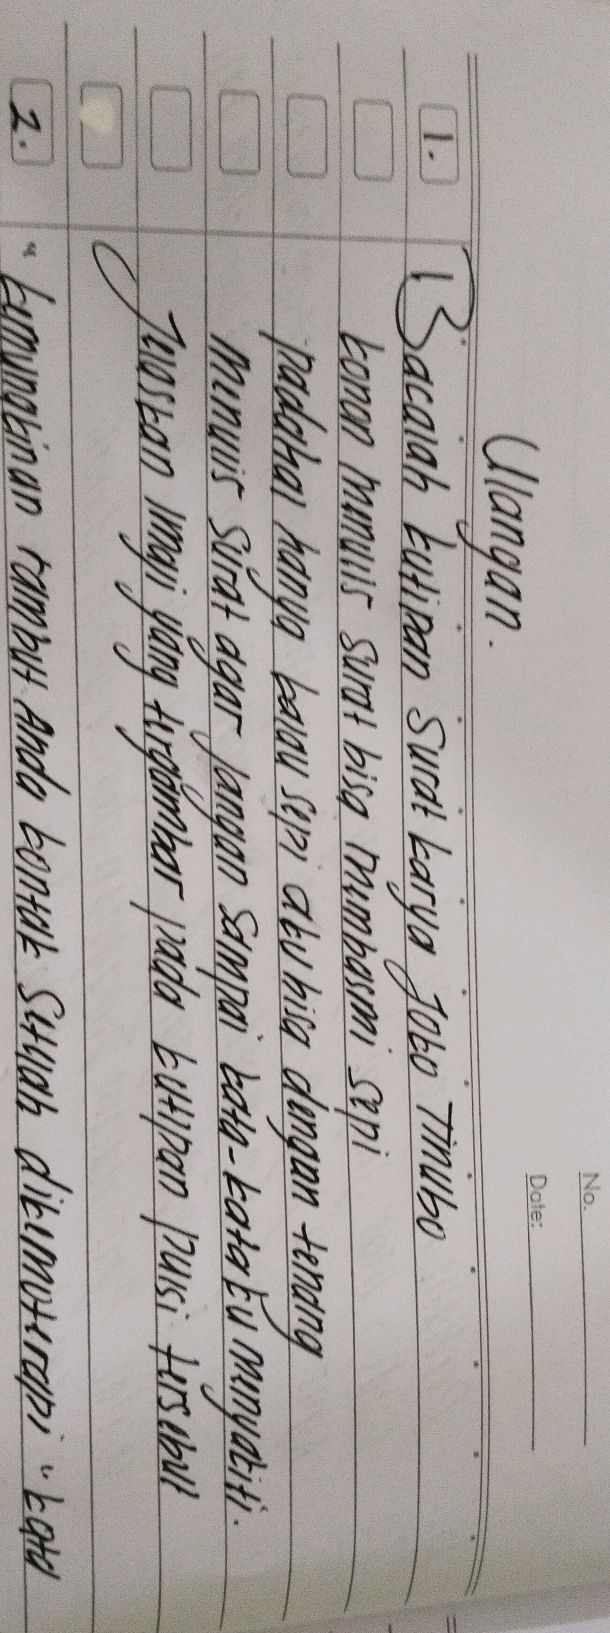 No.
Date:
Ulangan.
1. Bacalah kutipan surat karya Joko Tinubo
konon menulis surat bisa membasmi sepi
padahal hanya kalau sepi aku bisa dengan tenang
menulis surat agar jangan sampai kata-kataku menyakiti.
Jelaskan imaji yang tergambar pada kutipan puisi tersebut
2. "kemungkinan rambut Anda rontok setelah dikemoterapi" kata